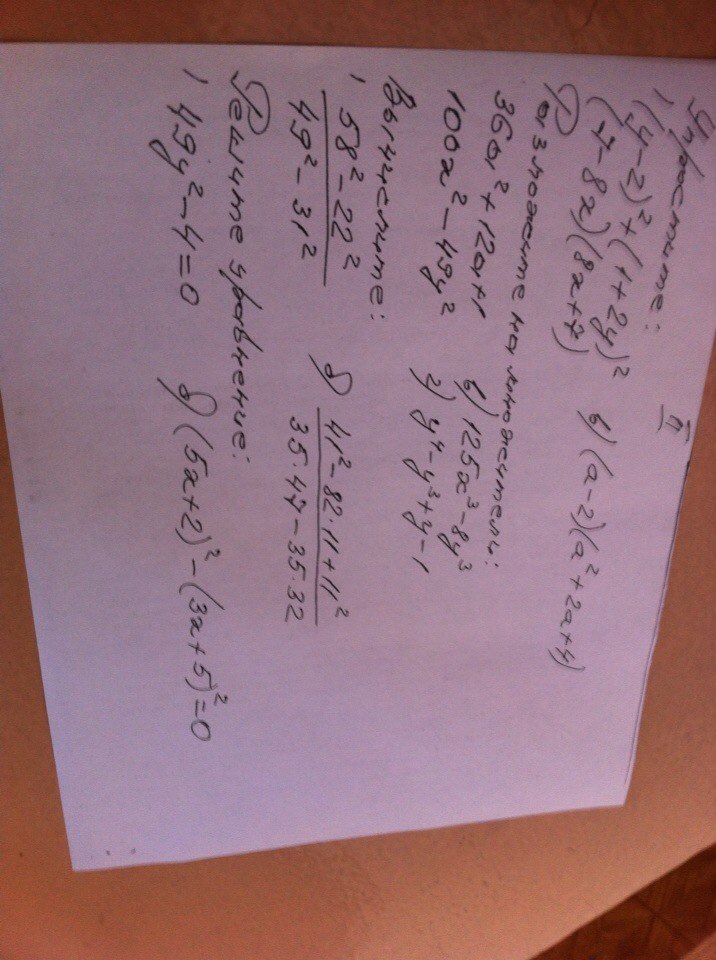 II
Упростите:
) (y-2)² + (1+2y)² в) (a-2)(a²+2a+4)
(7-8x)(8x+7)
Разложите на множители:
36a²+12a+1 в) 125x³-8y³
100x²-49y² г) y⁴-y³+y-1
Вычислите:
) 58²-22² / 49²-31² б) 41²-82·11+11² / 35·47-35·32
Решите уравнение:
) 49y²-4=0 б) (5x+2)²-(3x+5)²=0